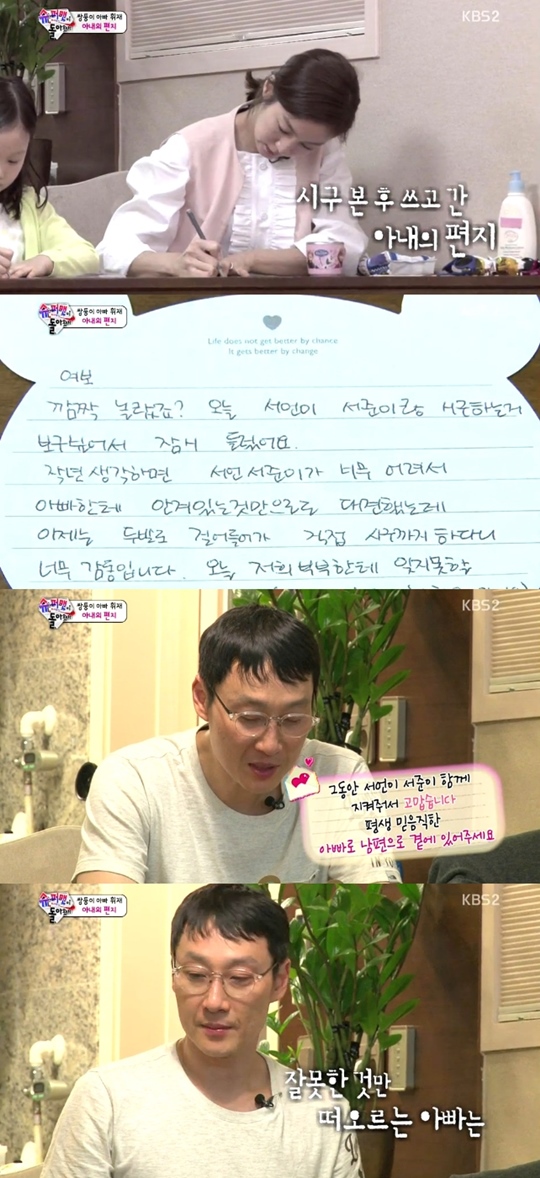 슈퍼맨이 돌아왔다
쌍둥이 아빠 휘재
아내의 편지
KBS2
시구 본 후 쓰고 간
아내의 편지
슈퍼맨이 돌아왔다
쌍둥이 아빠 휘재
아내의 편지
KBS2
Life does not get better by chance
It gets better by change
여보
깜짝 놀랐죠? 오늘 서언이 서준이랑 시구하는거
보구싶어서 잠시 들렸어요.
작년 생각하면 서언 서준이가 너무 어려서
아빠한테 안겨있는것만으로도 대견했는데
이제는 두발로 걸어들어가 직접 시구까지 하다니
너무 감동입니다. 오늘 저희 부부한테 잊지못할
슈퍼맨이 돌아왔다
쌍둥이 아빠 휘재
아내의 편지
KBS2
그동안 서언이 서준이 함께
지켜줘서 고맙습니다
평생 믿음직한
아빠로 남편으로 곁에 있어주세요
슈퍼맨이 돌아왔다
쌍둥이 아빠 휘재
아내의 편지
KBS2
잘못한 것만
떠오르는 아빠는